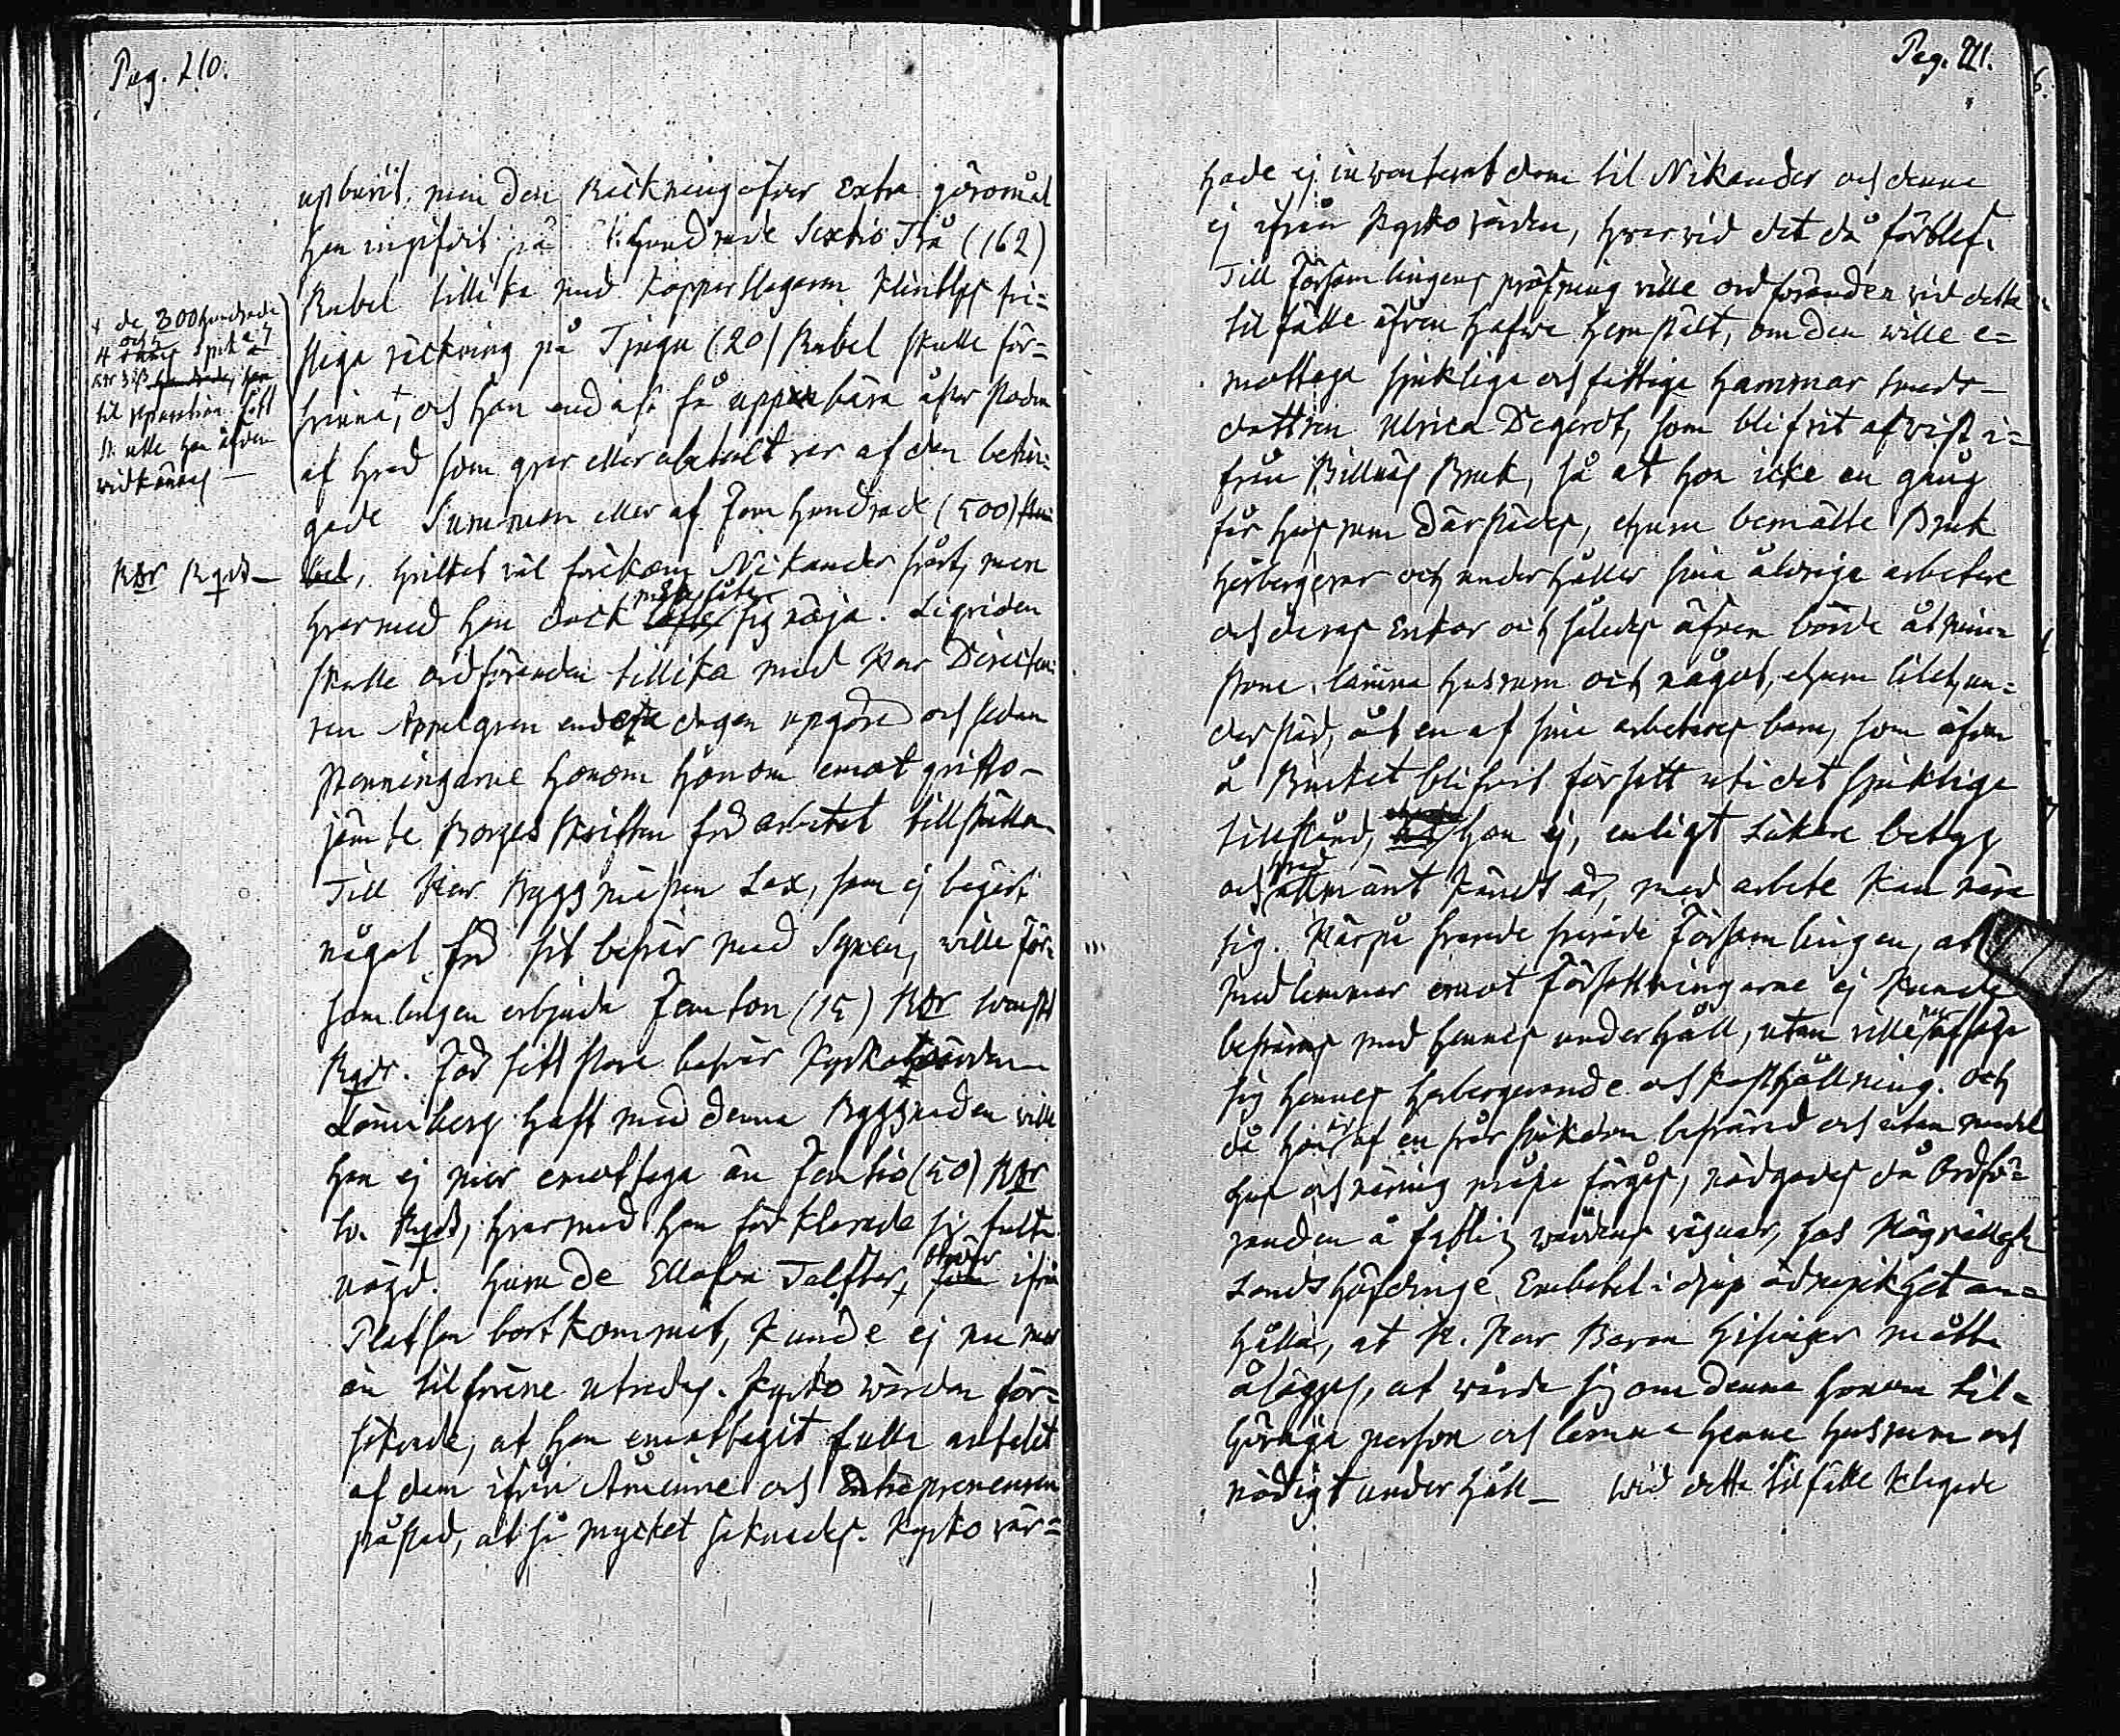 Pag. 210.
upburit, men den Räkning öfver Extra göromål
han ingifvit på Et hundrade Sextio Två (162)
Rubel tillika med Kopparslagaren
räkning på Tjugu (20) Rubel skulle för=
svinna, och han endast få uppbära åter stoden
af hvad som qvar eller obetalt var af den betin=
gade Summan eller af Fem hundrade (500)
bel, hvilket väl förekom Nikander svårt, men
hvarmed han dock måste låta sig nöja. Liqviden
skulle ordföranden tillika med Herr Directeu=
ren Appelgren endera dagen upgöra och sedan
penningarne honom honom emot qvitto
jämte Borges skriften för arbetet tillställa.
Till Herr Byggmästaren Lax, som ej begärt
något för sit besvär med Synen, ville för=
samlingen erbjuda Femton (15) RDr Svenskt
Rgds. För sitt stora besvär Kyrkovärden
Lönnberg haft med denna Byggnaden ville
han ej mer emottaga än Femtio (50) RDr
Sv. Rgds, hvarmed han förklarade sig fullt
nögd. Huru de Ellofva Tolfter, bräder ifrån
Platsen bortkommit, kunde ej nu mer
än tilförene utredas. Kyrko värden för=
säkrade, at han emottagit fulla antalet
af dem ifrån Åminne och Entrepreneuren
påstod, at så mycket saknades. Kyrko vär=
+ de 300 hundrade
och
4 tums Spik a
til reparation fått
skulle han äfven
vidkännas —
RDr Rgds
Pag. 211.
hade ej inventerat dem til Nikander och denne
ej ifrån Kyrko värden, hvarvid det då förblef.
Till Församlingens pröfning ville ordföranden vid detta
tilfälle äfven hafva hemstält, om den ville e=
mottaga sjukliga och fattiga Hammar smeds
dottren Ulrica Degerdt, som blifvit afvist i=
från Billnäs Bruk, så at hon icke en gång
får husrum därstädes, ehuru bemälte Bruk
härbergerar och underhåller sina åldriga arbetare
och deras Enkor och således äfven borde åtmin=
stone lämna husrum och något, ehuru litet, un=
derstöd, åt en af sina arbetares barn, som äfven
å Bruket blifvit försatt uti det sjukliga
tillstånd, at hon ej, enligt Läkare betyg
och hvad allmänt kändt är, med arbete kan nära
sig. Härpå svarade Församlingen, at
medlemmar emot Författningarne ej kunde
besväras med hennes underhåll, utan ville afsäga
sig hennes herbergerande och kosthållning. Och
då hon är af en svår sjukdom besvärad och utan medel
hus och näring måste förgås, nödgades då Ordfö=
randen å fattig vårdens vägnar, hos Högvällofl.
Landshöfdinge Embetet i djup ödmjukhet an=
hålla, at H. Herr Baron Hisinger måtte
åläggas, at vårda sig om denna honom til=
höriga person och lämna henne husrum och
nödigt underhåll — Wid detta tilfälle klagade